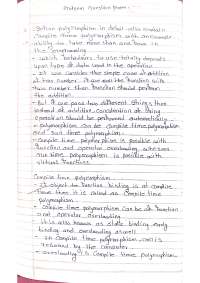 Problem Question Paper :-
Define polymorphism in detail with
compile time polymorphism with
ability to take more than one form in
the programming
which behaviors to use totally depends
upon type of data used in the operation
We can consider the simple case of addition
of two number. if we call the function with
two number then function should perform
the addition.
But if we pass two different strings then
instead of addition, concatenation of string
operation should be performed automatically
polymorphism can be compile time polymorphism
and run time polymorphism.
Compile time polymorphism is possible with
function and operator overloading whereas
run time polymorphism is possible with
virtual functions.
Compile time polymorphism
If object to function binding is at compile
time then it is called as compile time
polymorphism.
Compile time polymorphism can be of function
and operator overloading
It is also known as static binding, early
binding and overloading as well
In compile time polymorphism, call is
resolved by the compiler
overloading is compile time polymorphism